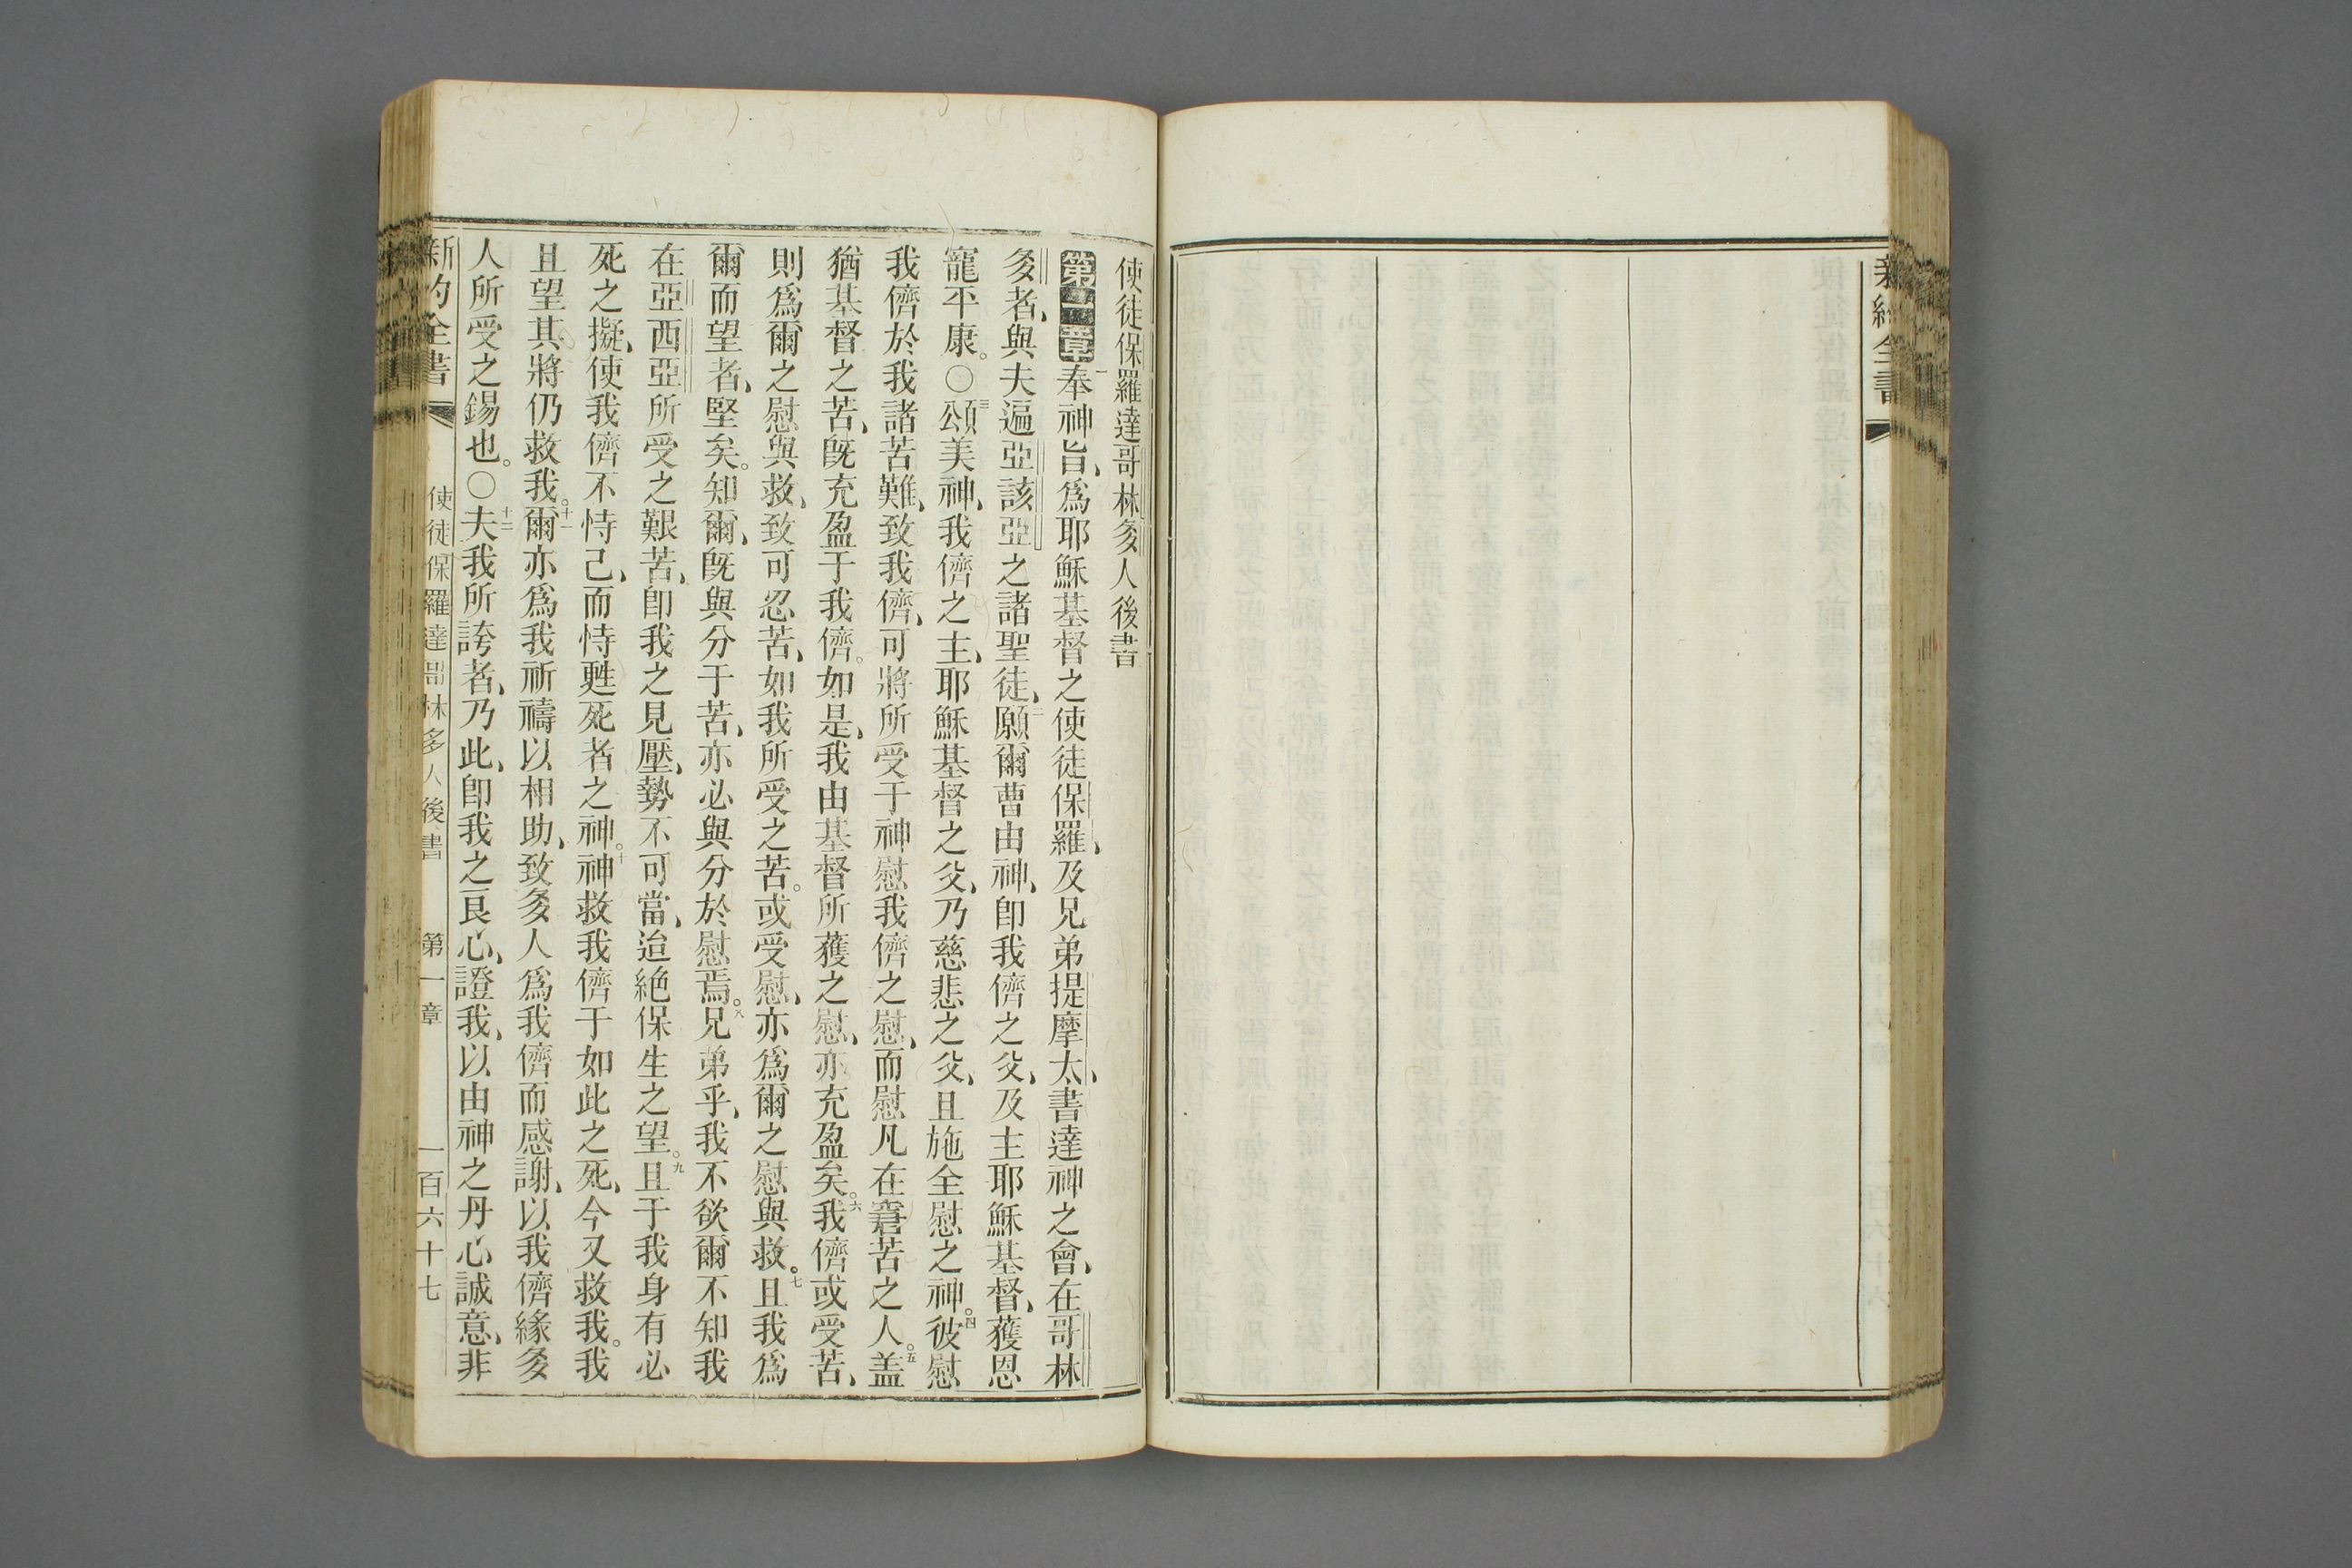 使徒保羅達哥林多人後書
第一章一奉神旨、爲耶穌基督之使徒保羅、及兄弟提摩太、書達神之會、在哥林
多者、與夫遍亞該亞之諸聖徒、二願爾曹由神、卽我儕之父、及主耶穌基督、獲恩
寵平康。○三頌美神、我儕之主、耶穌基督之父、乃慈悲之父、且施全慰之神。四彼慰
我儕於我諸苦難、致我儕、可將所受于神慰我儕之慰、而慰凡在窘苦之人。五盖
猶基督之苦、旣充盈于我儕。如是、我由基督所獲之慰、亦充盈矣。六我儕或受苦、
則爲爾之慰與救、致可忍苦、如我所受之苦。或受慰、亦爲爾之慰與救。七且我爲
爾而望者、堅矣。知爾、旣與分于苦、亦必與分於慰焉。八兄弟乎、我不欲爾不知我
在亞西亞所受之艱苦、卽我之見壓、勢不可當、迨絶保生之望。九且于我身有必
死之擬、使我儕不恃己、而恃甦死者之神。十神救我儕于如此之死、今又救我。我
且望其將仍救我。十一爾亦爲我祈禱以相助、致多人爲我儕而感謝、以我儕緣多
人所受之錫也。○十二夫我所誇者、乃此、卽我之良心、證我、以由神之丹心誠意、非
新約全書 使徒保羅達哥林多人後書 第一章 一百六十七